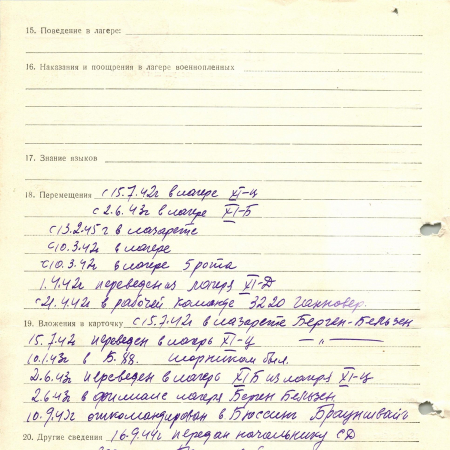 15. Поведение в лагере:
16. Наказания и поощрения в лагере военнопленных
17. Знание языков
18. Перемещения с 15.7.42г в лагере XI-Ц
с 2.6.43г в лагере XI-Б
с 13.2.45г в лазарете
с 10.3.42г в лагере
с 10.3.42г в лагере 5 рота
1.4.42г переведен из лагеря XI-Д
с 21.4.42г в рабочей команде 3220 Ганновер.
19. Вложения в карточку с 15.7.42г в лазарете Берген-Бельзен
15.7.42г переведен в лагерь XI-Ц — " —
10.1.43г в шорником был.
2.6.43г переведен в лагерь XI Б из лагеря XI-Ц
2.6.43г в филиале лагеря Берген Бельзен
10.9.43г откомандирован в Бюссинг Брауншвайг
20. Другие сведения 16.9.44г передан начальнику СД